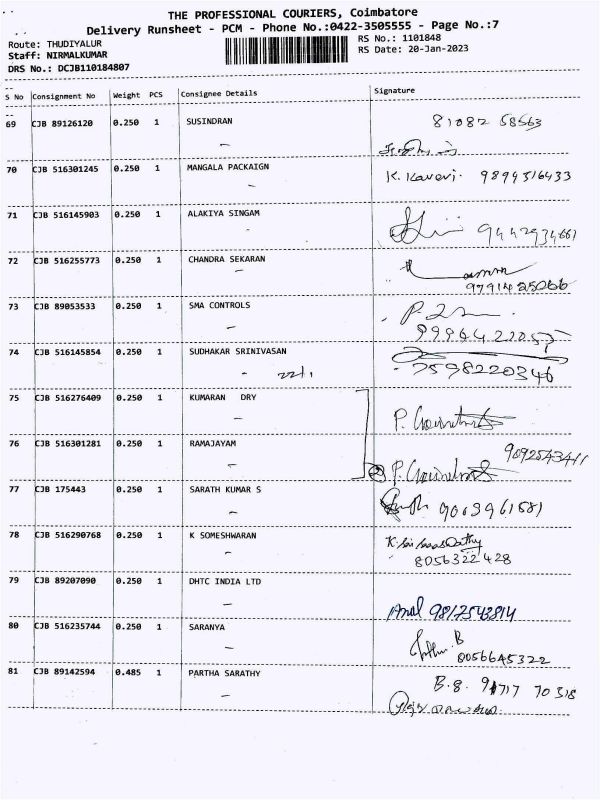 THE PROFESSIONAL COURIERS, Coimbatore
Delivery Runsheet - PCM - Phone No.:0422-3505555 - Page No.:7
Route: THUDIYALUR
Staff: NIRMALKUMAR
DRS No.: DCJB110184807
RS No.: 1101848
RS Date: 20-Jan-2023
S No Consignment No Weight PCS Consignee Details Signature
69 CJB 89126120 0.250 1 SUSINDRAN 81082 58563
70 CJB 516301245 0.250 1 MANGALA PACKAIGN K. Kaveri. 9894316433
71 CJB 516145903 0.250 1 ALAKIYA SINGAM 9442934661
72 CJB 516255773 0.250 1 CHANDRA SEKARAN
9791425066
73 CJB 89053533 0.250 1 SMA CONTROLS
74 CJB 516145854 0.250 1 SUDHAKAR SRINIVASAN
22/1 7598220346
75 CJB 516276409 0.250 1 KUMARAN DRY
76 CJB 516301281 0.250 1 RAMAJAYAM 9092543411
77 CJB 175443 0.250 1 SARATH KUMAR S
9003961581
78 CJB 516290768 0.250 1 K SOMESHWARAN
8056322428
79 CJB 89207090 0.250 1 DHTC INDIA LTD
9817543814
80 CJB 516235744 0.250 1 SARANYA
8056645322
81 CJB 89142594 0.485 1 PARTHA SARATHY B.g. 91717 70318